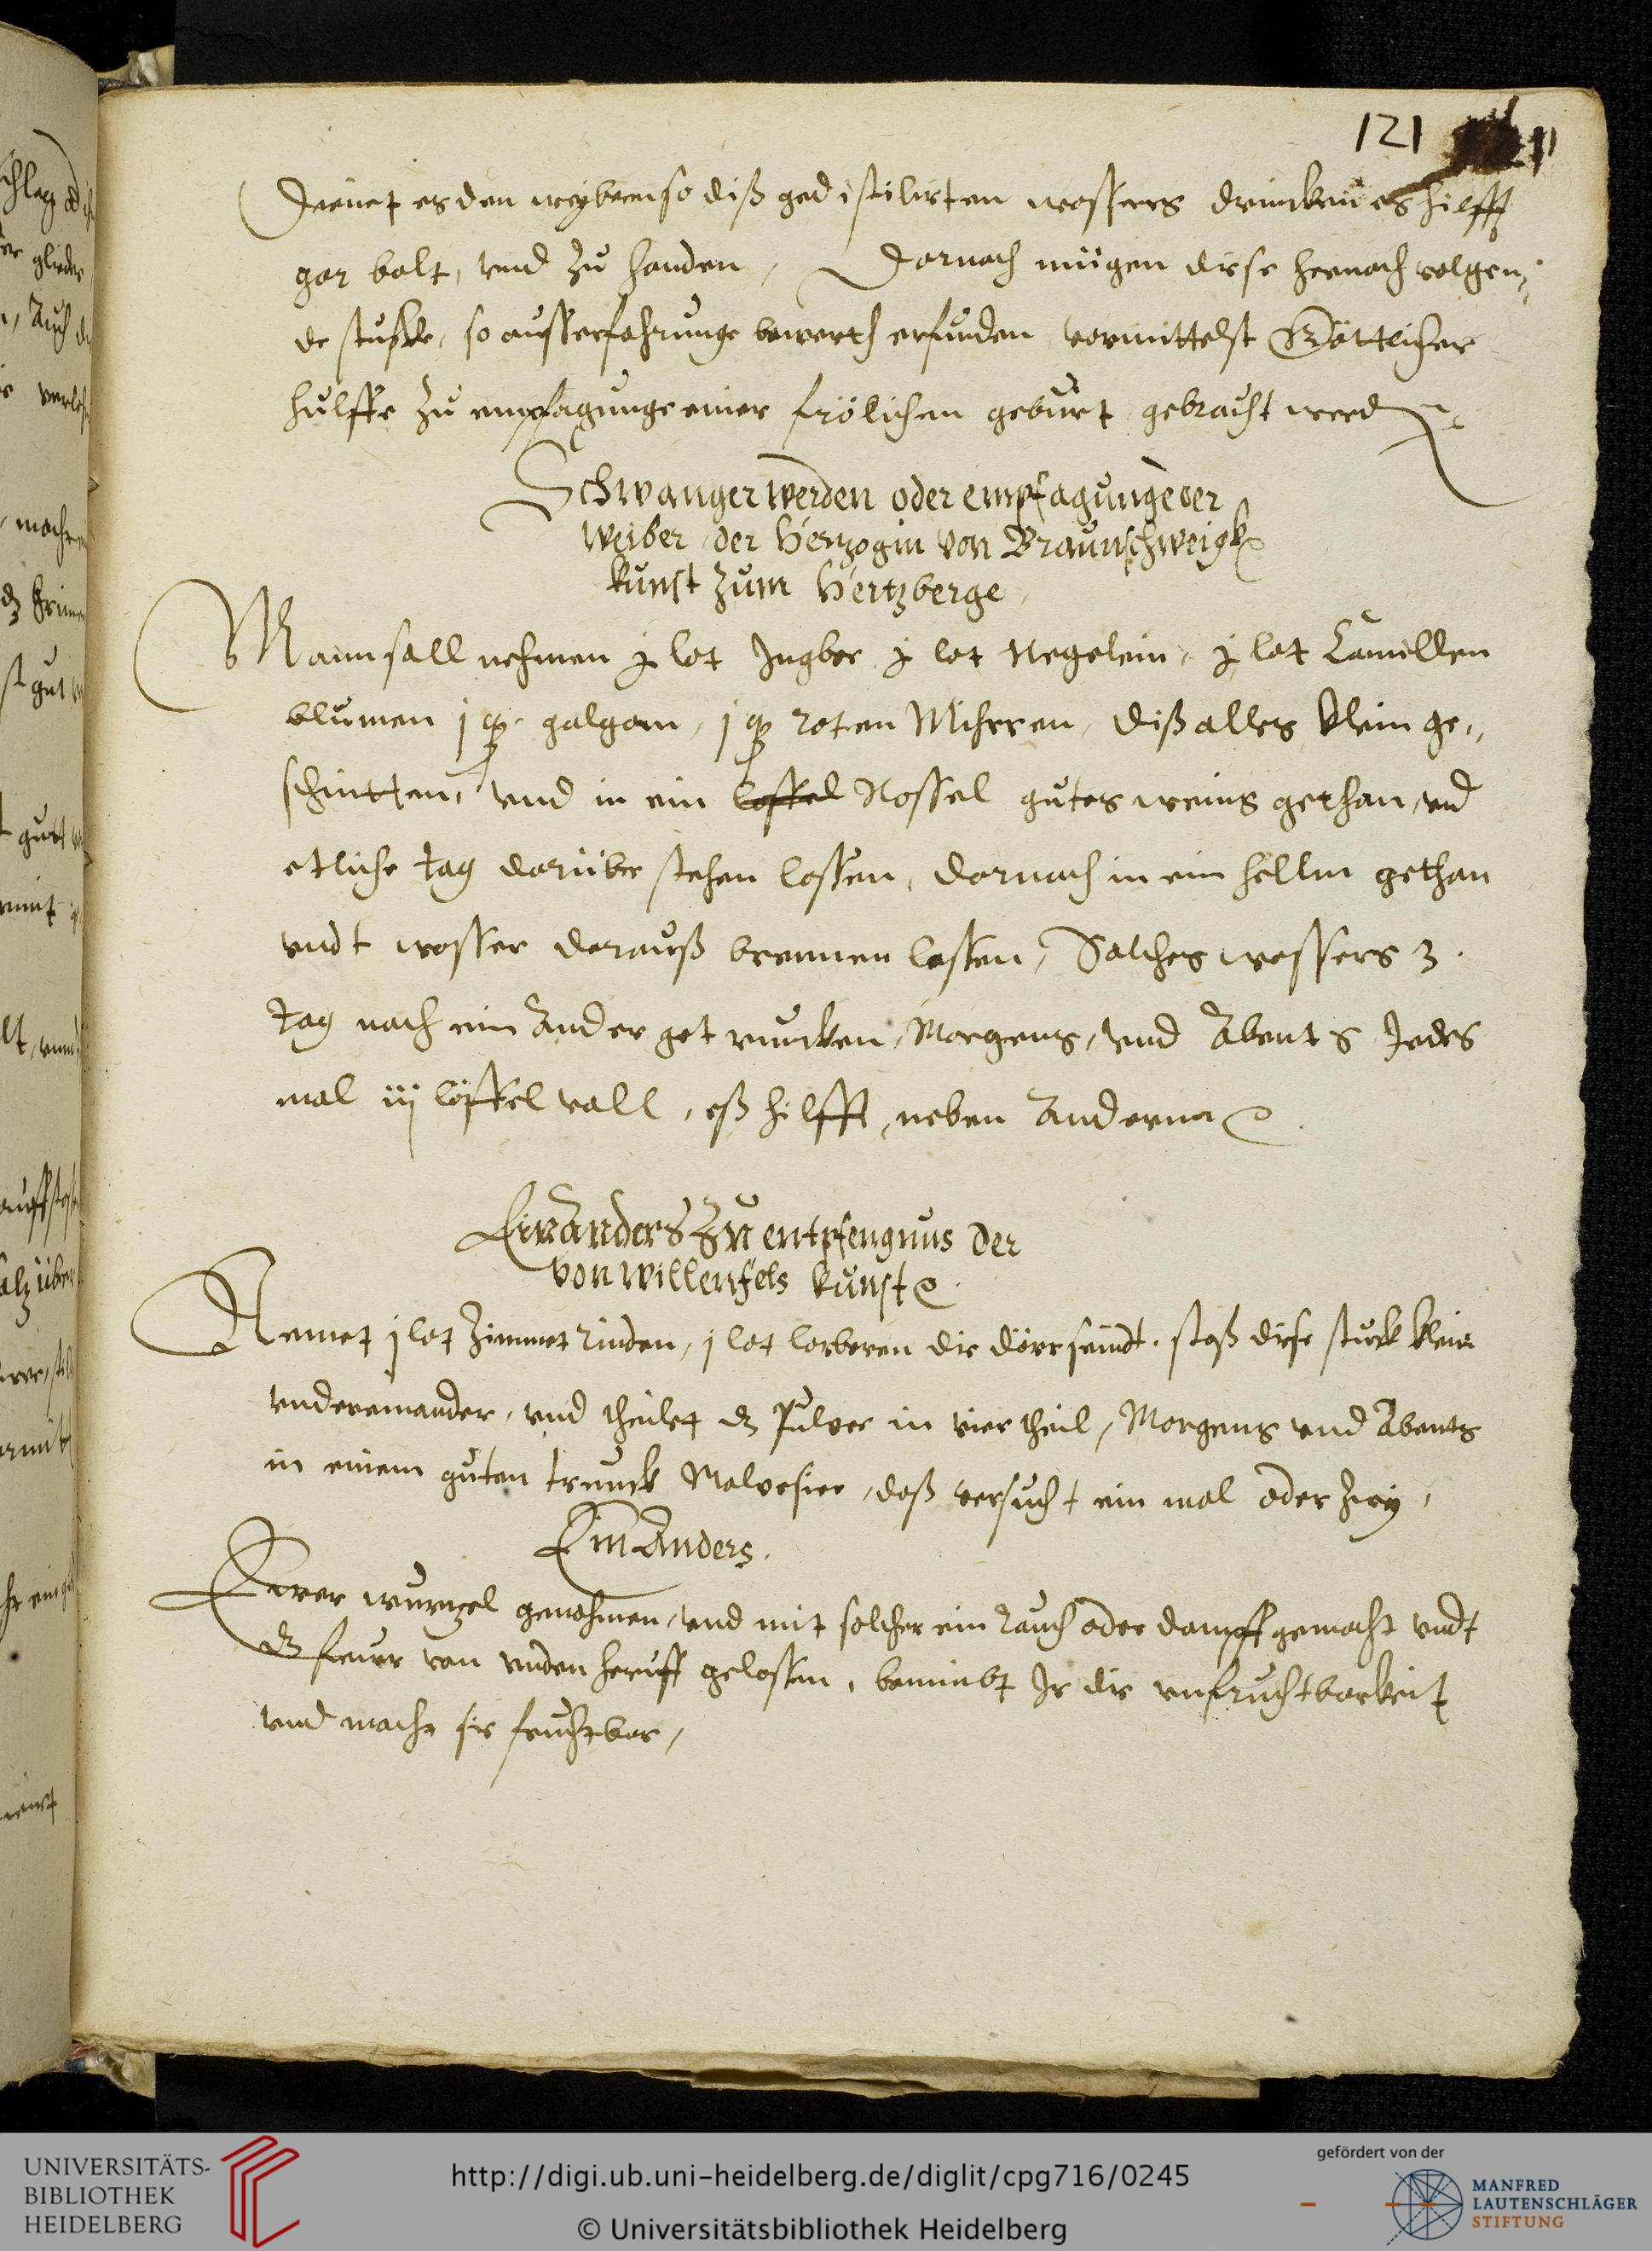 121
Dienet es den weybern so diß gedistilirten wassers drincken es hilfft
gar balt, vnd zu handen, Dornach mügen diese hernach volgen⸗
de stucke, so aussERfahrunge bewerth erfunden vormittelst Göttlicher
hulffe zu empfagunge einer frölichen geburt gebracht werd
Schwanger werden oder empfagunge der
Weiber der Hertzogin von Braunschweigk
kunst zum Hertzberge
Mann sall nehmen j lot Ingber j lot Negelein, j lot Camillen
blumen j q galgam, j q roten Mihrren, diß alles klein ge⸗
schnitten, vnd in ein loffel Nossel gutes weins gethan, vnd
etliche tag darüber stehen lossen, dornach in ein hellm gethan
vndt wosser dorauß brennen lassen, Solches wassers 3.
tag nach ein Ander getruncken, Morgens, vnd Abents Jedes
mal iij löffel voll, eß hilfft, neben Andernn
Ein Anders Zu entpfengnus der
von Willenfels kunst
Nemet j lot Zimmet rinden, j lot lorberen die dörr seindt. stoß diese stuck klein
vndereinander, vnd theilet dz Pulver in vier theil, Morgens vnd Abents
in einem guten trunck Malvesier, daß versucht ein mal oder zwey,
Ein Anders.
wurtzel genohmen, vnd mit solcher ein rauch oder dampff gemacht vndt
dz feuer von vnden heruff gelossen, benimbt Ir die vnfruchtbarkeit
vnd macht sie fruchtbar,
UNIVERSITÄTS-
BIBLIOTHEK
HEIDELBERG
http://digi.ub.uni-heidelberg.de/diglit/cpg716/0245
© Universitätsbibliothek Heidelberg
gefördert von der
MANFRED
LAUTENSCHLÄGER
STIFTUNG